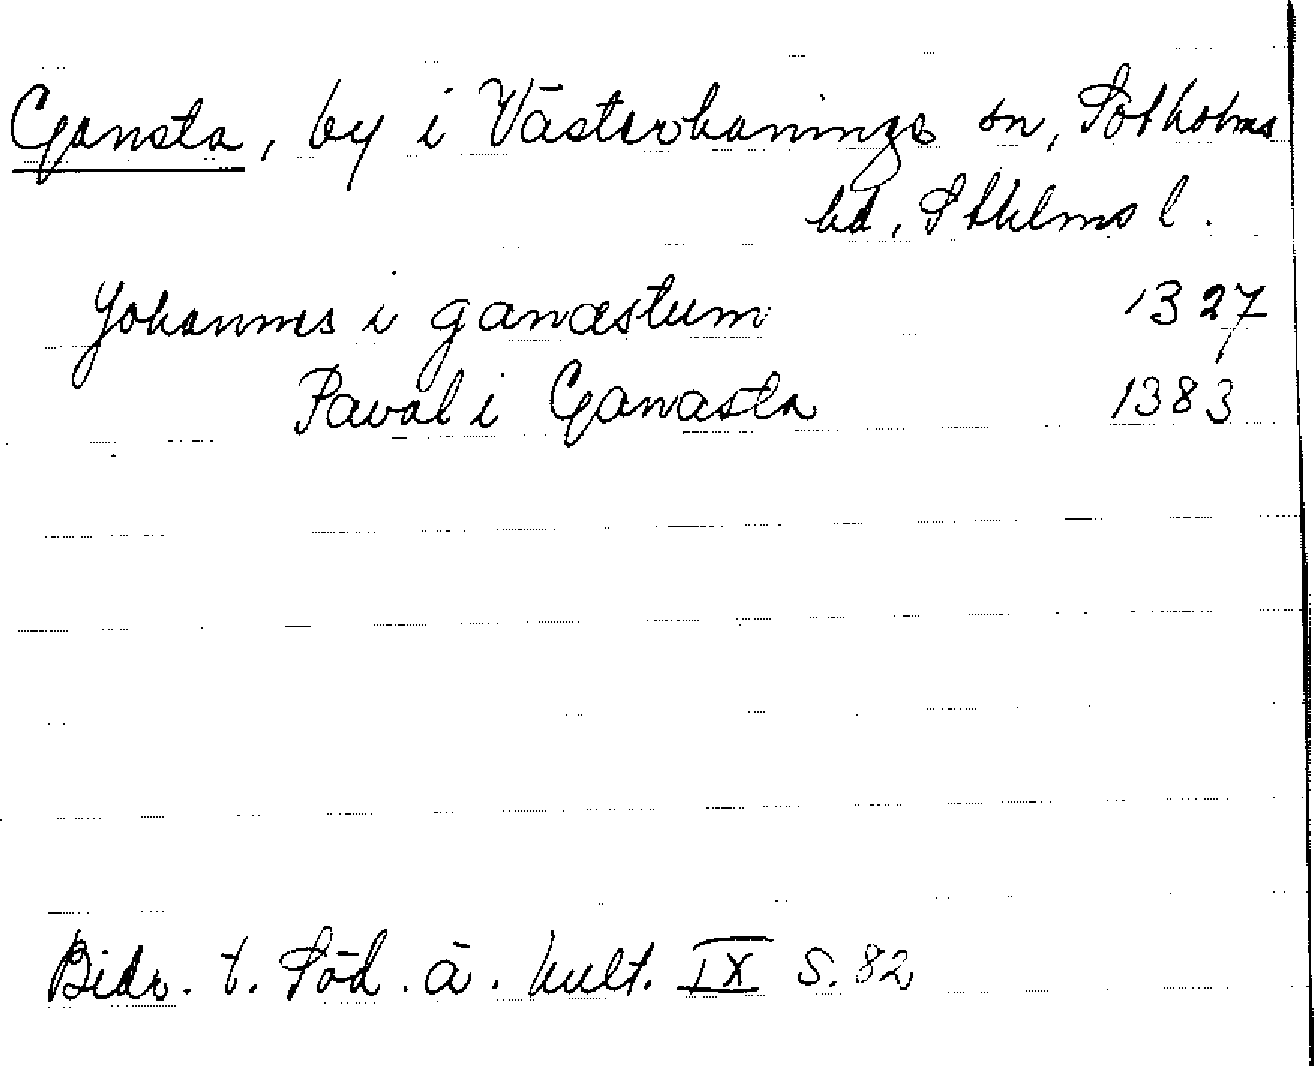 Gansta, by i Västerhaninge sn, Sotholms
hd, Sthlms l.
Johannes i ganastum 1327
Paval i Ganasta 1383
Bidr. t. Söd. ä. kult. IX S. 82